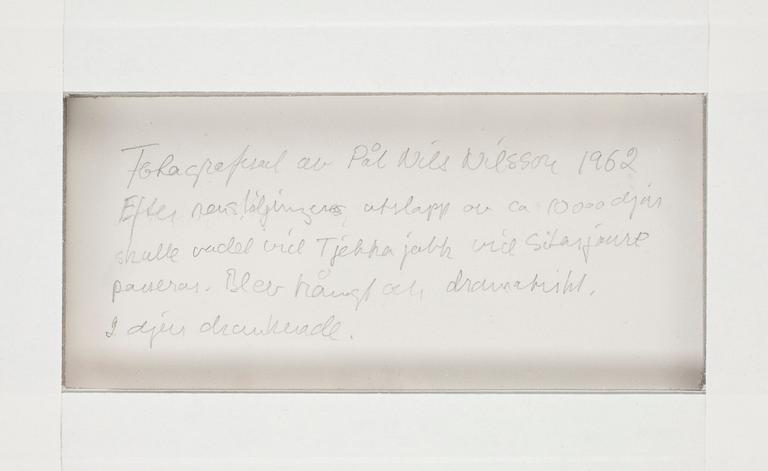 Fotograferat av Pål Nils Nilsson 1962
Efter utsläpp av ca 10 000 djur
skulle vadet vid Tjekkajokk vid Sitasjaure
passeras. Blev trångt och dramatiskt.
2 djur drunknade.